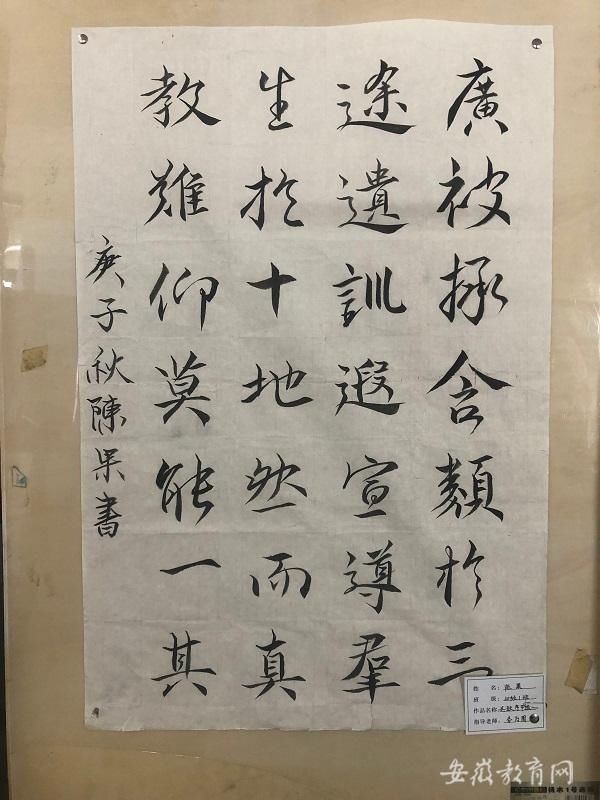 廣被拯含類於三
途遺訓遐宣導羣
生於十地然而真
教難仰莫能一其
庚子秋陳果書
姓 名:
班 级:
作品名称:
指导老师:
安徽教育网